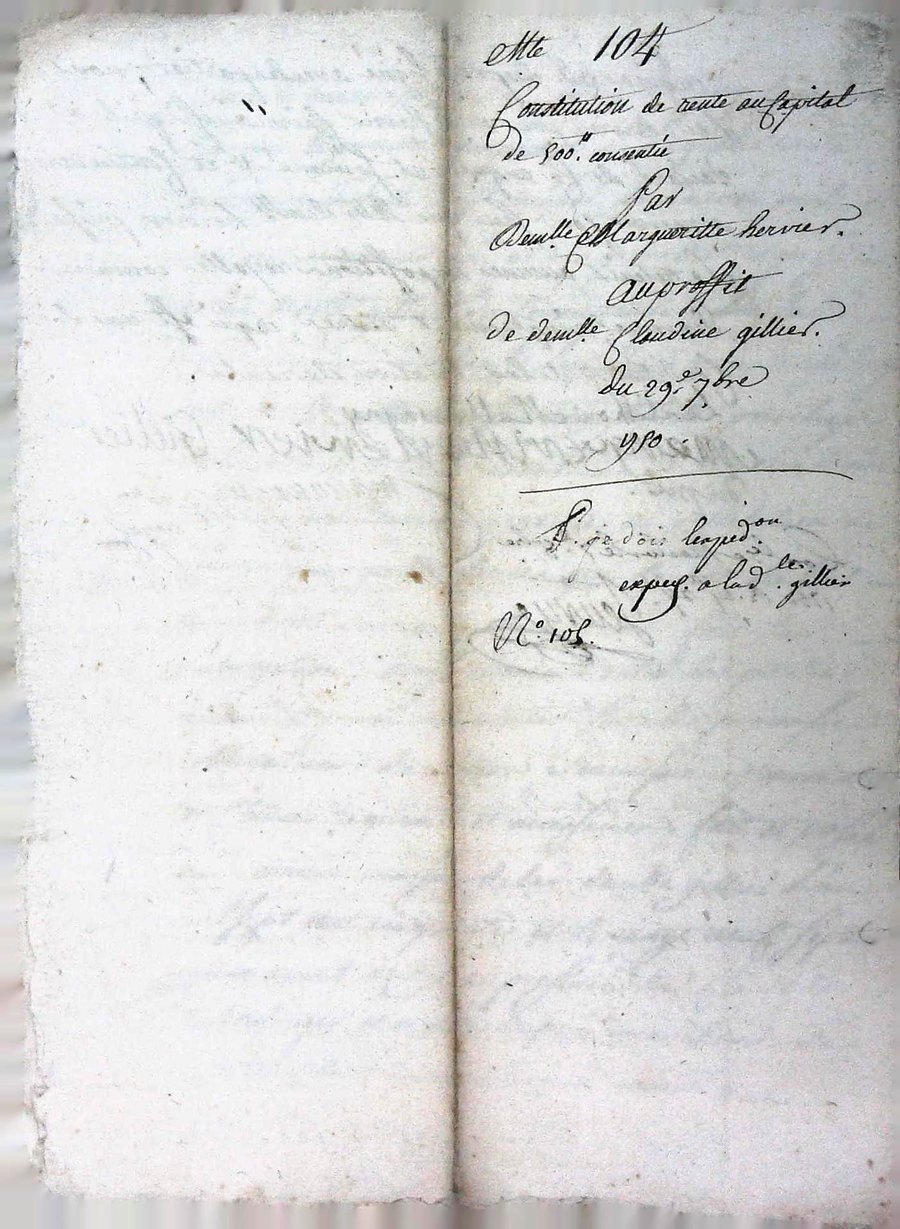 Mte 104
Constitution de rente au Capital
de 500.ll consentie
Par
Demlle. Margueritte hervier.
au proffit
de demlle. Claudine gillier.
du 29e. 7bre
1750.
je dois lexpedon.
exped. a lad.lle gillier
No. 105.